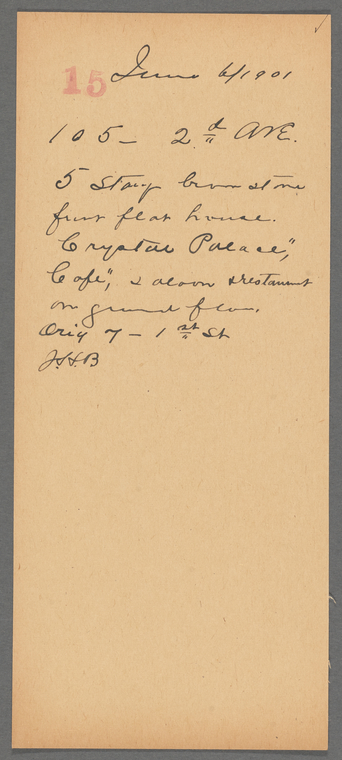 15 June 6/1901
105 - 2d Ave.
5 Story brown stone
front flat house.
"Crystal Palace",
Cafe", saloon & restaurant
on ground floor.
Orig 7 - 1st St
J.S.B